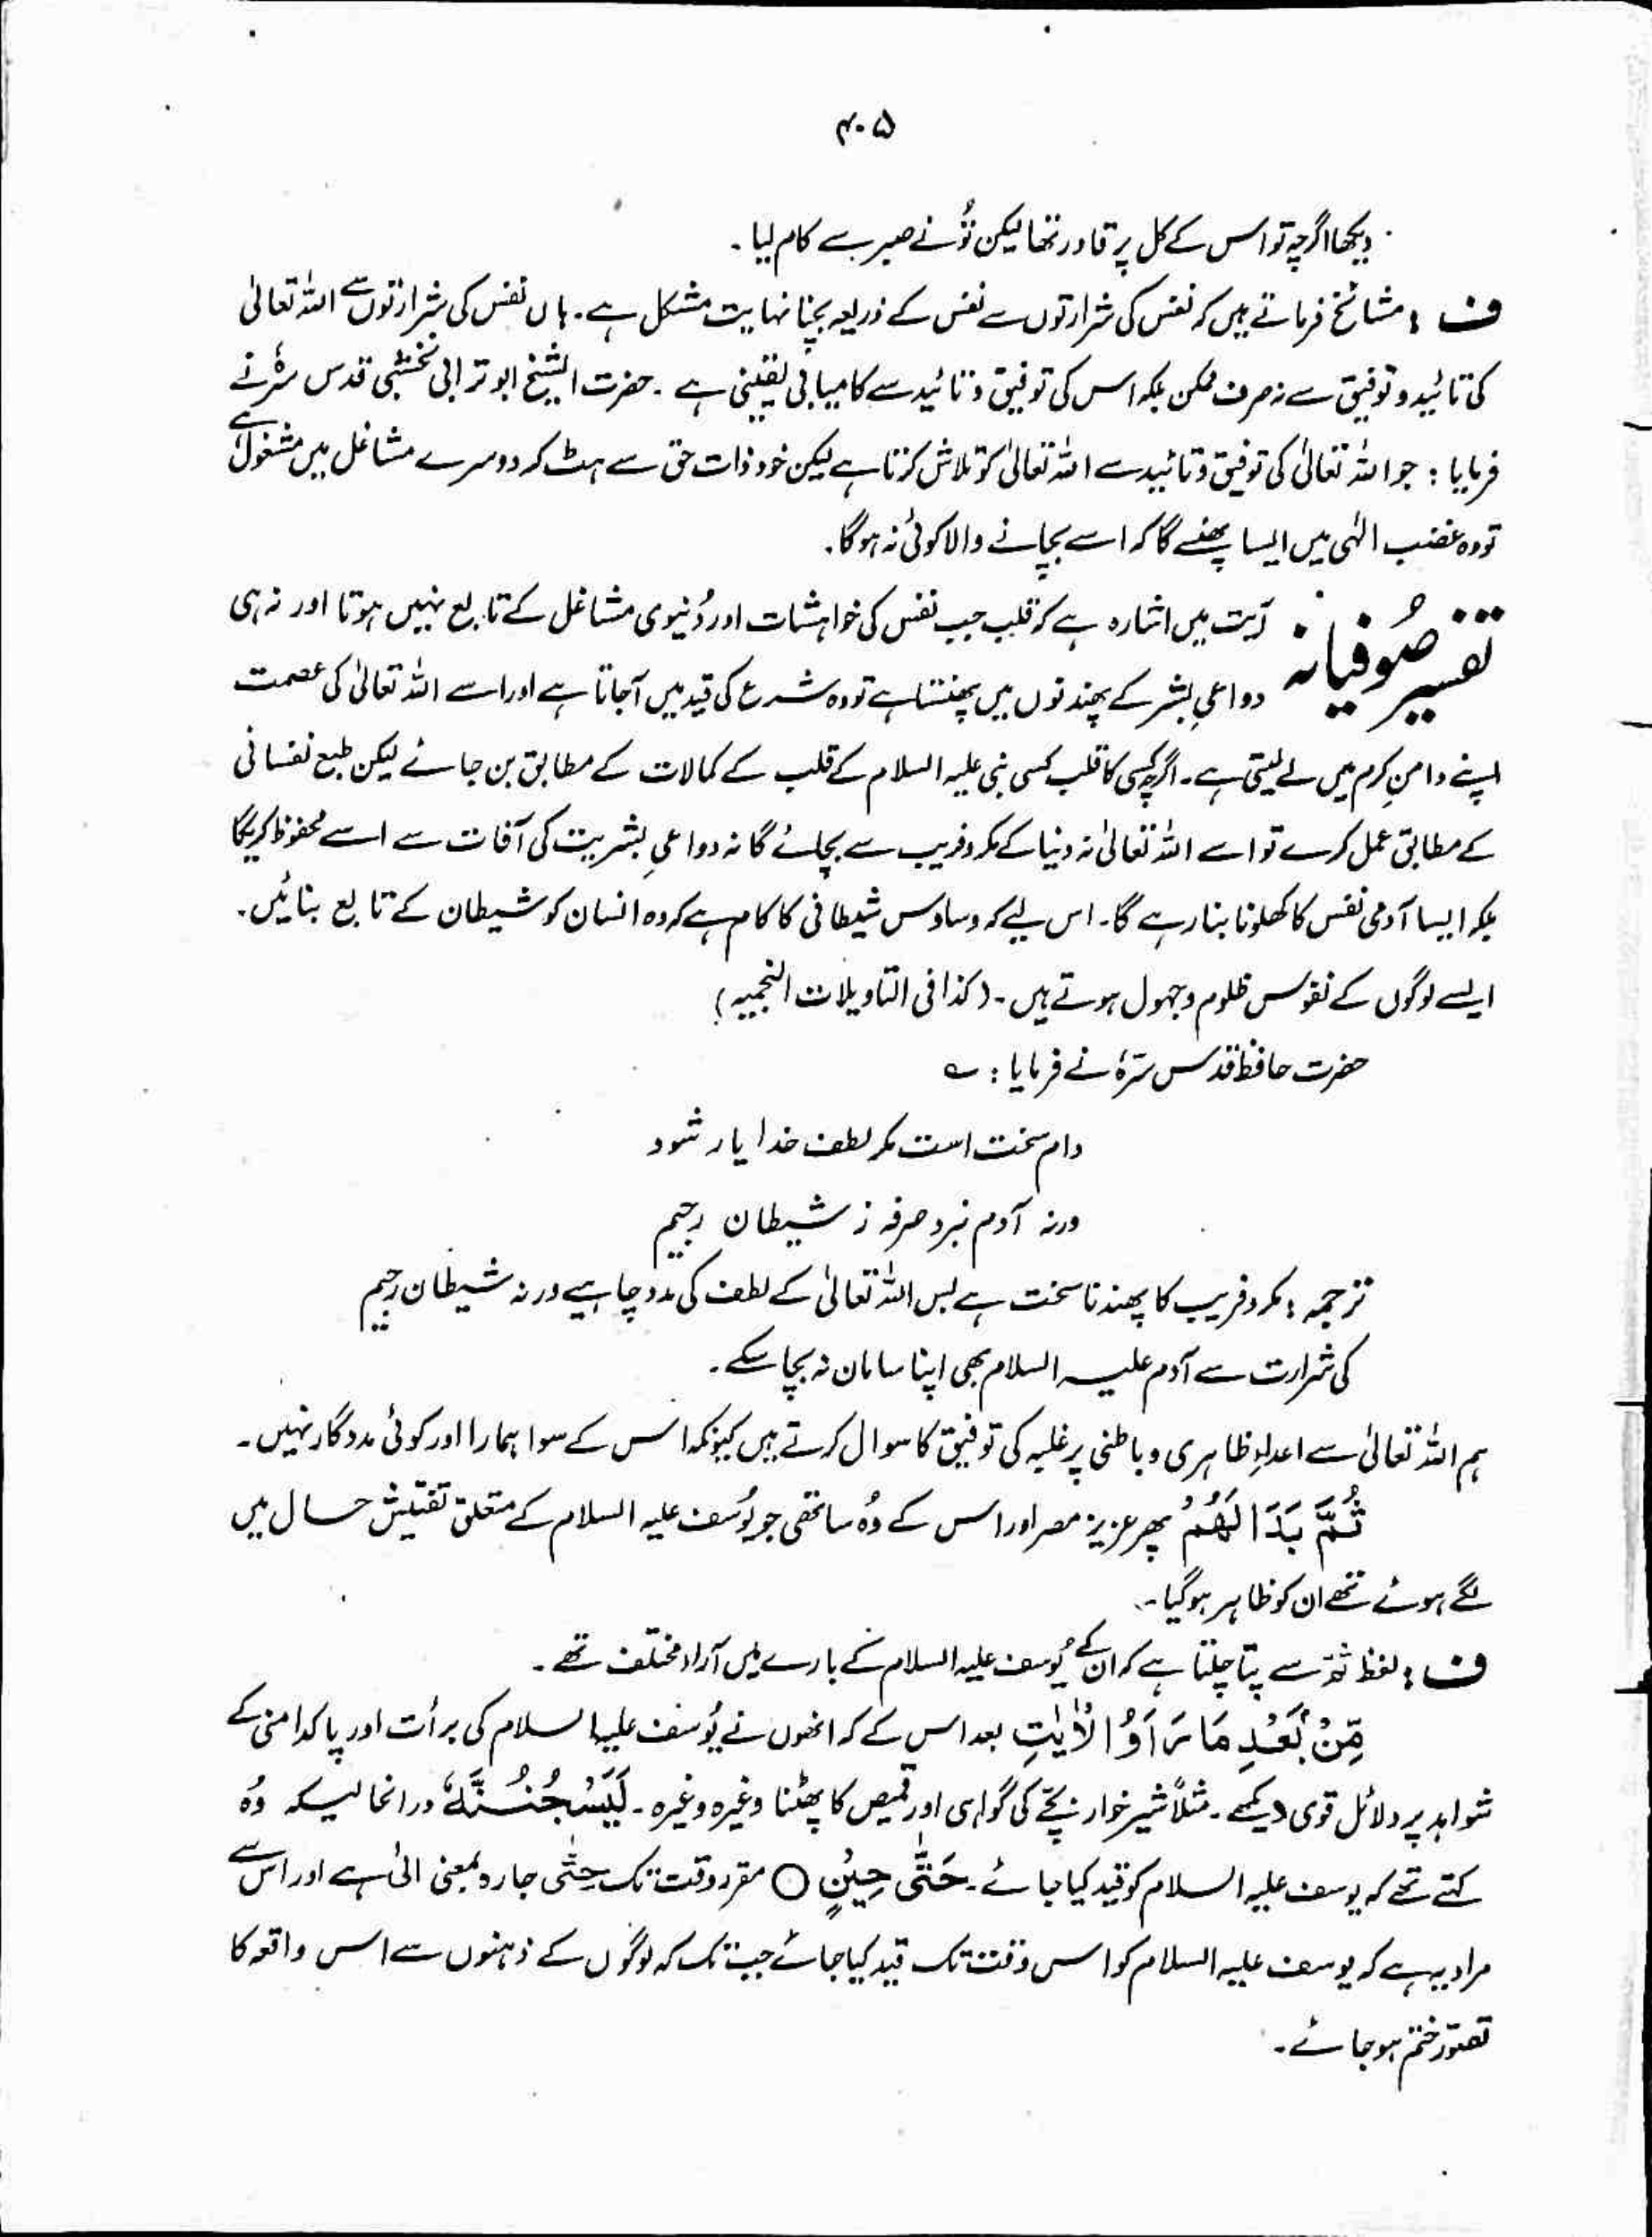 ۴۰۵
دیکھا اگرچہ تو اس کے کل پر قادر تھا لیکن تُو نے صبر سے کام لیا۔
ف : مشائخ فرماتے ہیں کہ نفس کی شرارتوں سے نفس کے ذریعہ بچنا نہایت مشکل ہے۔ ہاں نفس کی شرارتوں سے اللہ تعالیٰ
کی تائید و توفیق سے نہ صرف ممکن بلکہ اس کی توفیق و تائید سے کامیابی یقینی ہے۔ حضرت الشیخ ابو ترابی نخشبی قدس سرہٗ نے
فرمایا : جو اللہ تعالیٰ کی توفیق و تائید سے اللہ تعالیٰ کو تلاش کرتا ہے لیکن خود ذات حق سے ہٹ کر دوسرے مشاغل میں مشغول ہے
تو وہ غضب الٰہی میں ایسا پھنسے گا کہ اسے بچانے والا کوئی نہ ہوگا۔
تفسیر صُوفیانہ آیت میں اشارہ ہے کہ قلب جب نفس کی خواہشات اور دُنیوی مشاغل کے تابع نہیں ہوتا اور نہ ہی
دواعیِ بشر کے پھندنوں میں پھنستا ہے تو وہ شرع کی قید میں آجاتا ہے اور اسے اللہ تعالیٰ کی عصمت
اپنے دامنِ کرم میں لے لیتی ہے۔ اگرچہ کسی کا قلب کسی نبی علیہ السلام کے قلب کے کمالات کے مطابق بن جائے لیکن طبع نفسانی
کے مطابق عمل کرے تو اسے اللہ تعالیٰ نہ دنیا کے مکر و فریب سے بچائے گا نہ دواعیِ بشریت کی آفات سے اسے محفوظ کریگا
بلکہ ایسا آدمی نفس کا کھلونا بنا رہے گا۔ اس لیے کہ وساوس شیطانی کا کام ہے کہ وہ انسان کو شیطان کے تابع بنائیں۔
ایسے لوگوں کے نفوس ظلوم و جہول ہوتے ہیں۔ (کذا فی التاویلات النجمیہ)
حضرت حافظ قدس سرّہٗ نے فرمایا : ؎
دام سخت است مگر لطف خدا یار شود
ورنہ آدم نبرد صرفہ ز شیطان رجیم
ترجمہ : مکر و فریب کا پھندنا سخت ہے بس اللہ تعالیٰ کے لطف کی مدد چاہیے ورنہ شیطان رجیم
کی شرارت سے آدم علیہ السلام بھی اپنا سامان نہ بچا سکے۔
ہم اللہ تعالیٰ سے اعداءِ ظاہری و باطنی پر غلبہ کی توفیق کا سوال کرتے ہیں کیونکہ اس کے سوا ہمارا اور کوئی مددگار نہیں۔
ثُمَّ بَدَا لَهُمْ پھر عزیز مصر اور اس کے وُہ ساتھی جو یُوسف علیہ السلام کے متعلق تفتیش حال میں
لگے ہوئے تھے ان کو ظاہر ہوگیا۔
ف : لفظ ثمّ سے پتا چلتا ہے کہ ان کے یُوسف علیہ السلام کے بارے میں آراء مختلف تھے۔
مِّنْۢ بَعْدِ مَا رَاَوُا الْاٰیٰتِ بعد اس کے کہ انھوں نے یُوسف علیہ السلام کی برأت اور پاکدامنی کے
شواہد پر دلائل قوی دیکھے۔ مثلاً شیر خوار بچّے کی گواہی اور قمیص کا پھٹنا وغیرہ وغیرہ۔ لَیَسْجُنُنَّهٗ درانحالیکہ وُہ
کہتے تھے کہ یوسف علیہ السلام کو قید کیا جائے۔ حَتّٰی حِیْنٍ ○ مقرر وقت تک حتّٰی جارہ بمعنی الیٰ ہے اور اس سے
مراد یہ ہے کہ یوسف علیہ السلام کو اس وقت تک قید کیا جائے جب تک کہ لوگوں کے ذہنوں سے اس واقعہ کا
تصوّر ختم ہو جائے۔